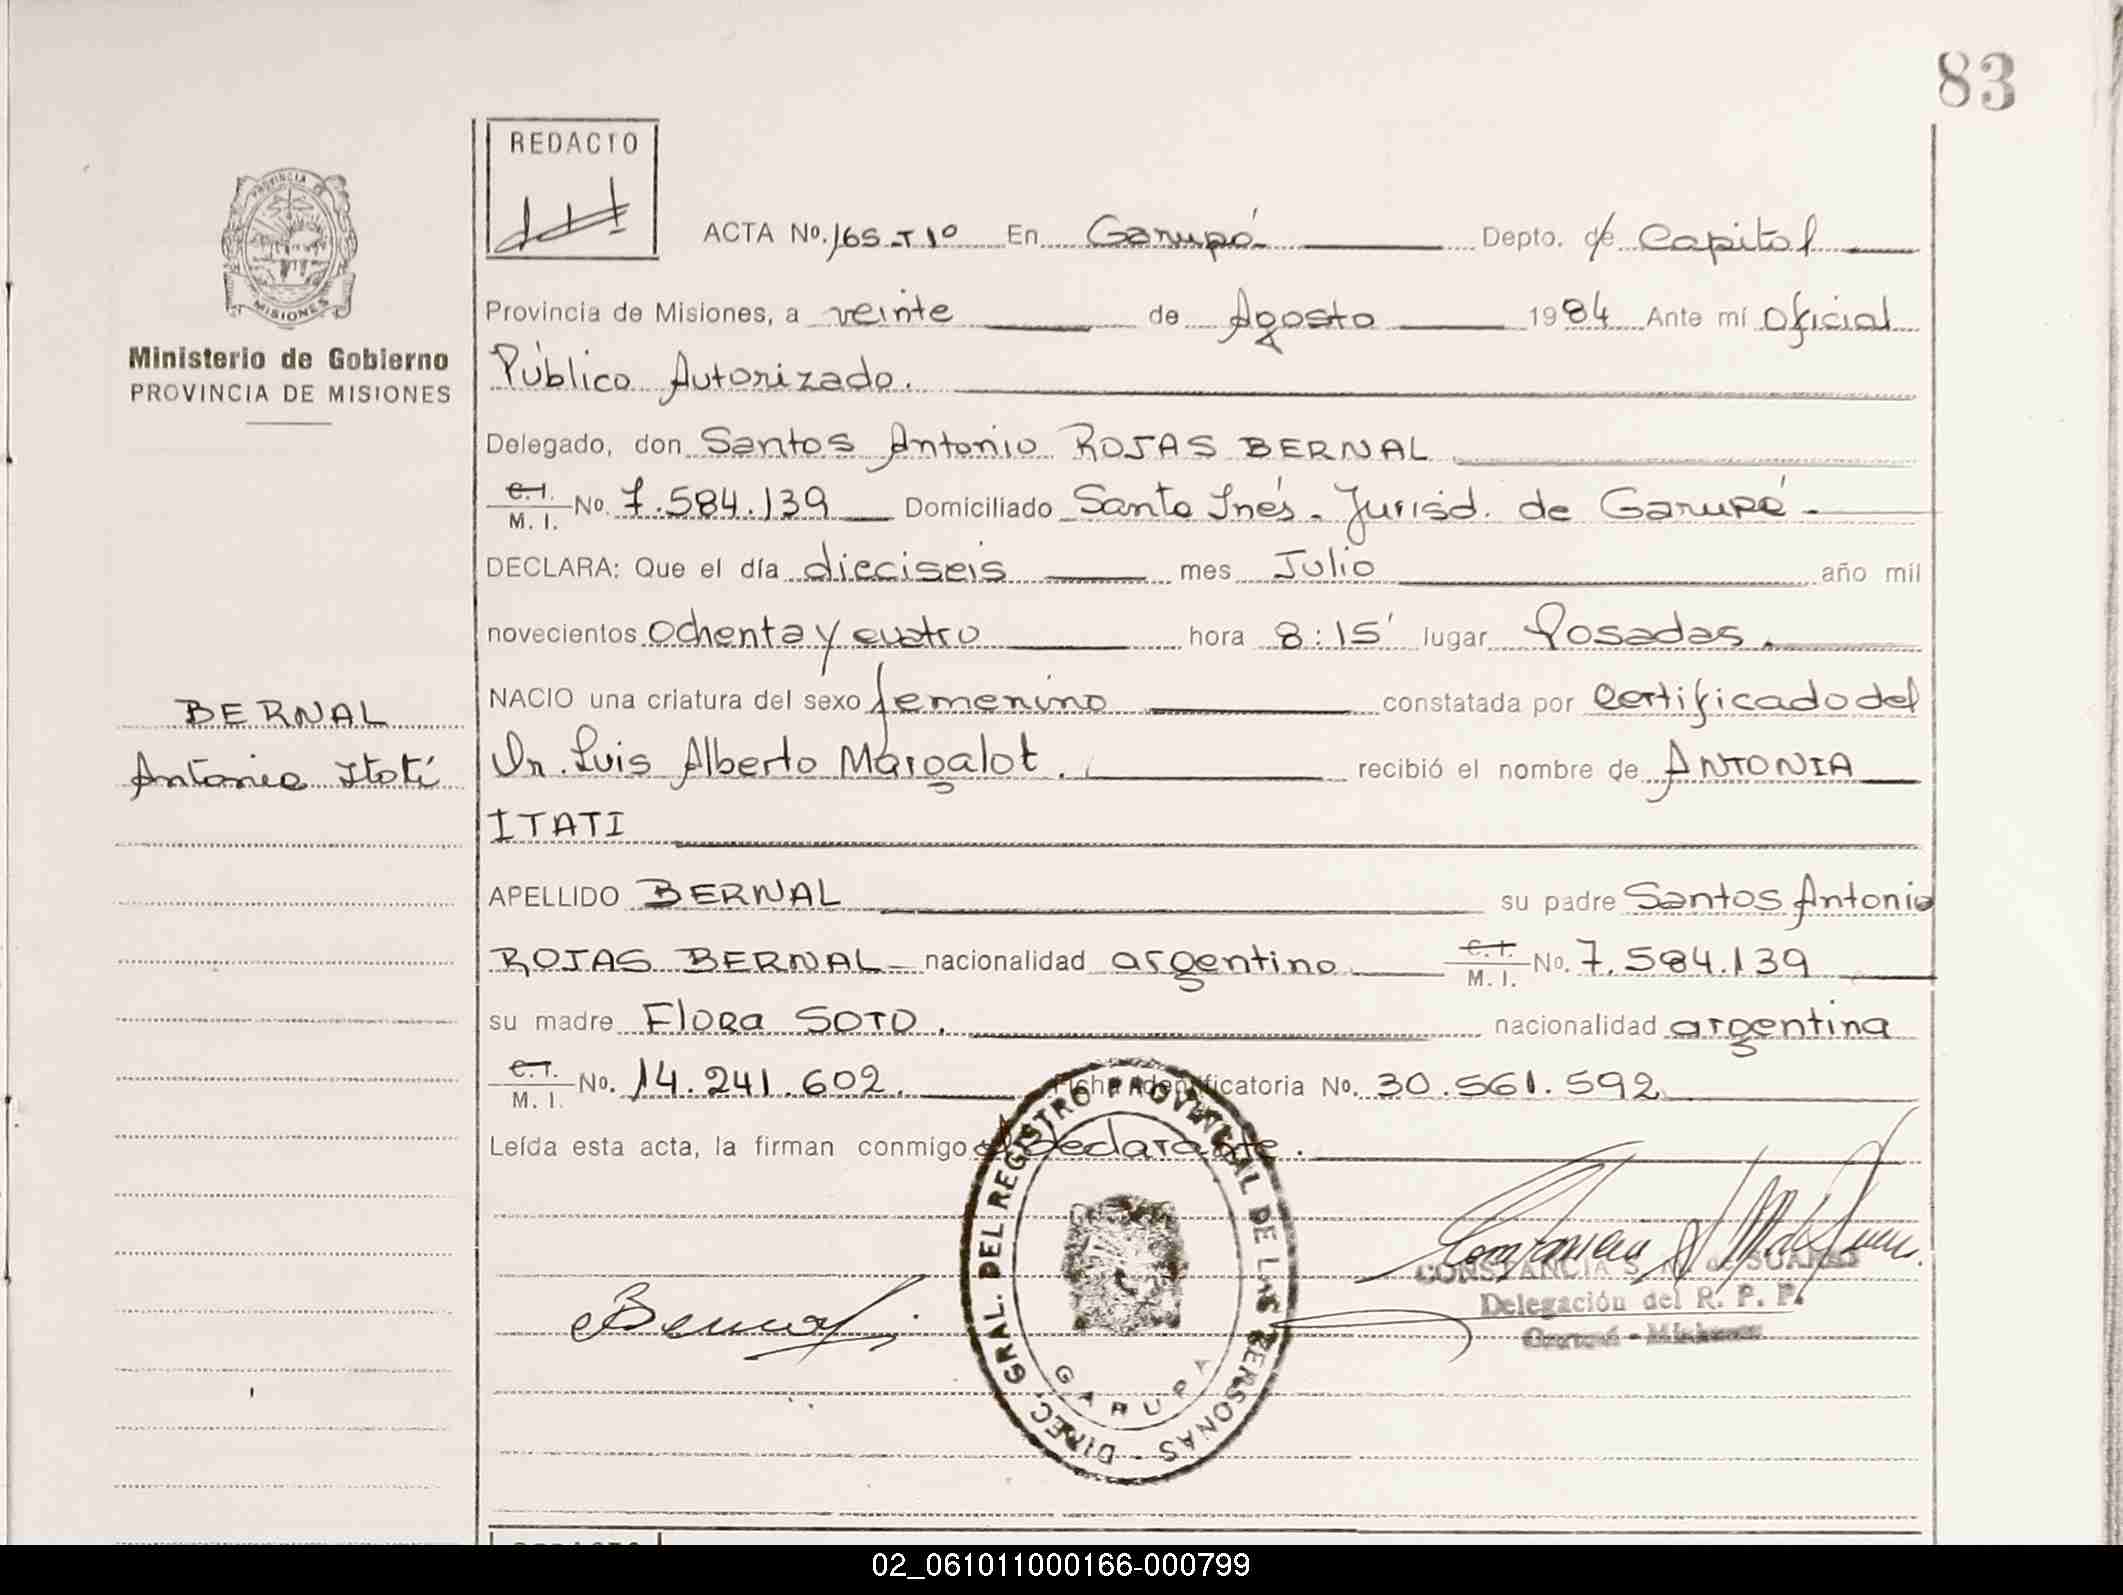 83
REDACTO
PROVINCIA DE
MISIONES
Ministerio de Gobierno
PROVINCIA DE MISIONES
BERNAL
Antonia Itatí
ACTA No. 165 - T 1º En Garupá Depto. de Capital
Provincia de Misiones, a veinte de Agosto 1984 Ante mí Oficial
Público Autorizado.
Delegado, don Santos Antonio ROJAS BERNAL
C.I. M. I. No. 7.584.139 Domiciliado Santa Inés - Jurisd. de Garupá -
DECLARA: Que el día dieciseis mes Julio año mil
novecientos ochenta y cuatro hora 8:15' lugar Posadas.
NACIO una criatura del sexo femenino constatada por Certificado del
Dr. Luis Alberto Margalot. recibió el nombre de ANTONIA
ITATI
APELLIDO BERNAL su padre Santos Antonio
ROJAS BERNAL nacionalidad argentino C.I. M. I. No. 7.584.139
su madre Flora SOTO. nacionalidad argentina
C.I. M. I. No. 14.241.602. Ficha Identificatoria No. 30.561.592
Leída esta acta, la firman conmigo el Declarante.
Bernal
DIREC. GRAL. DEL REGISTRO PROVINCIAL DE LAS PERSONAS
GARUPA
CONSTANCIA S. M. de SUAREZ
Delegación del R. P. P.
Garupá - Misiones
02_061011000166-000799